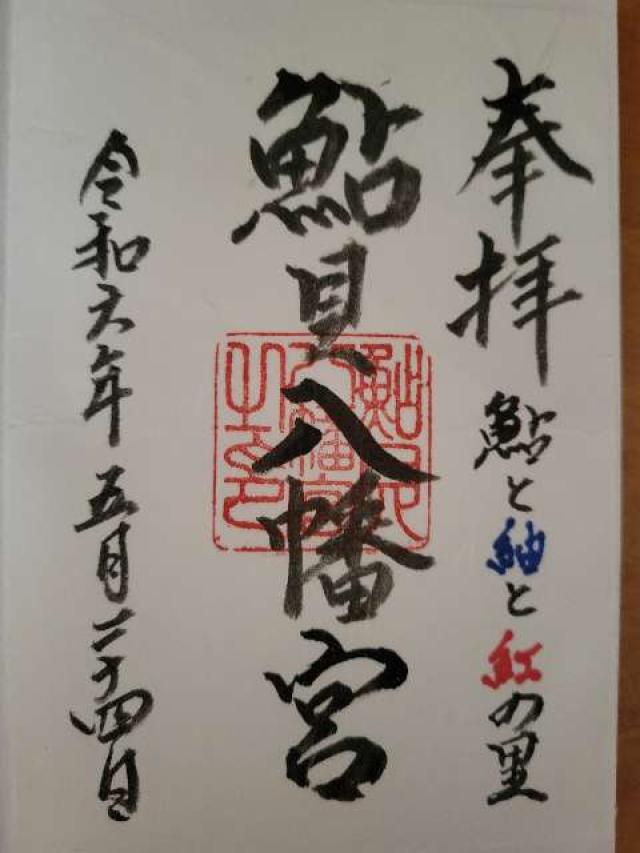 奉拝
鮎と紬と紅の里
鮎貝八幡宮
鮎貝八幡宮之印
令和六年五月二十四日